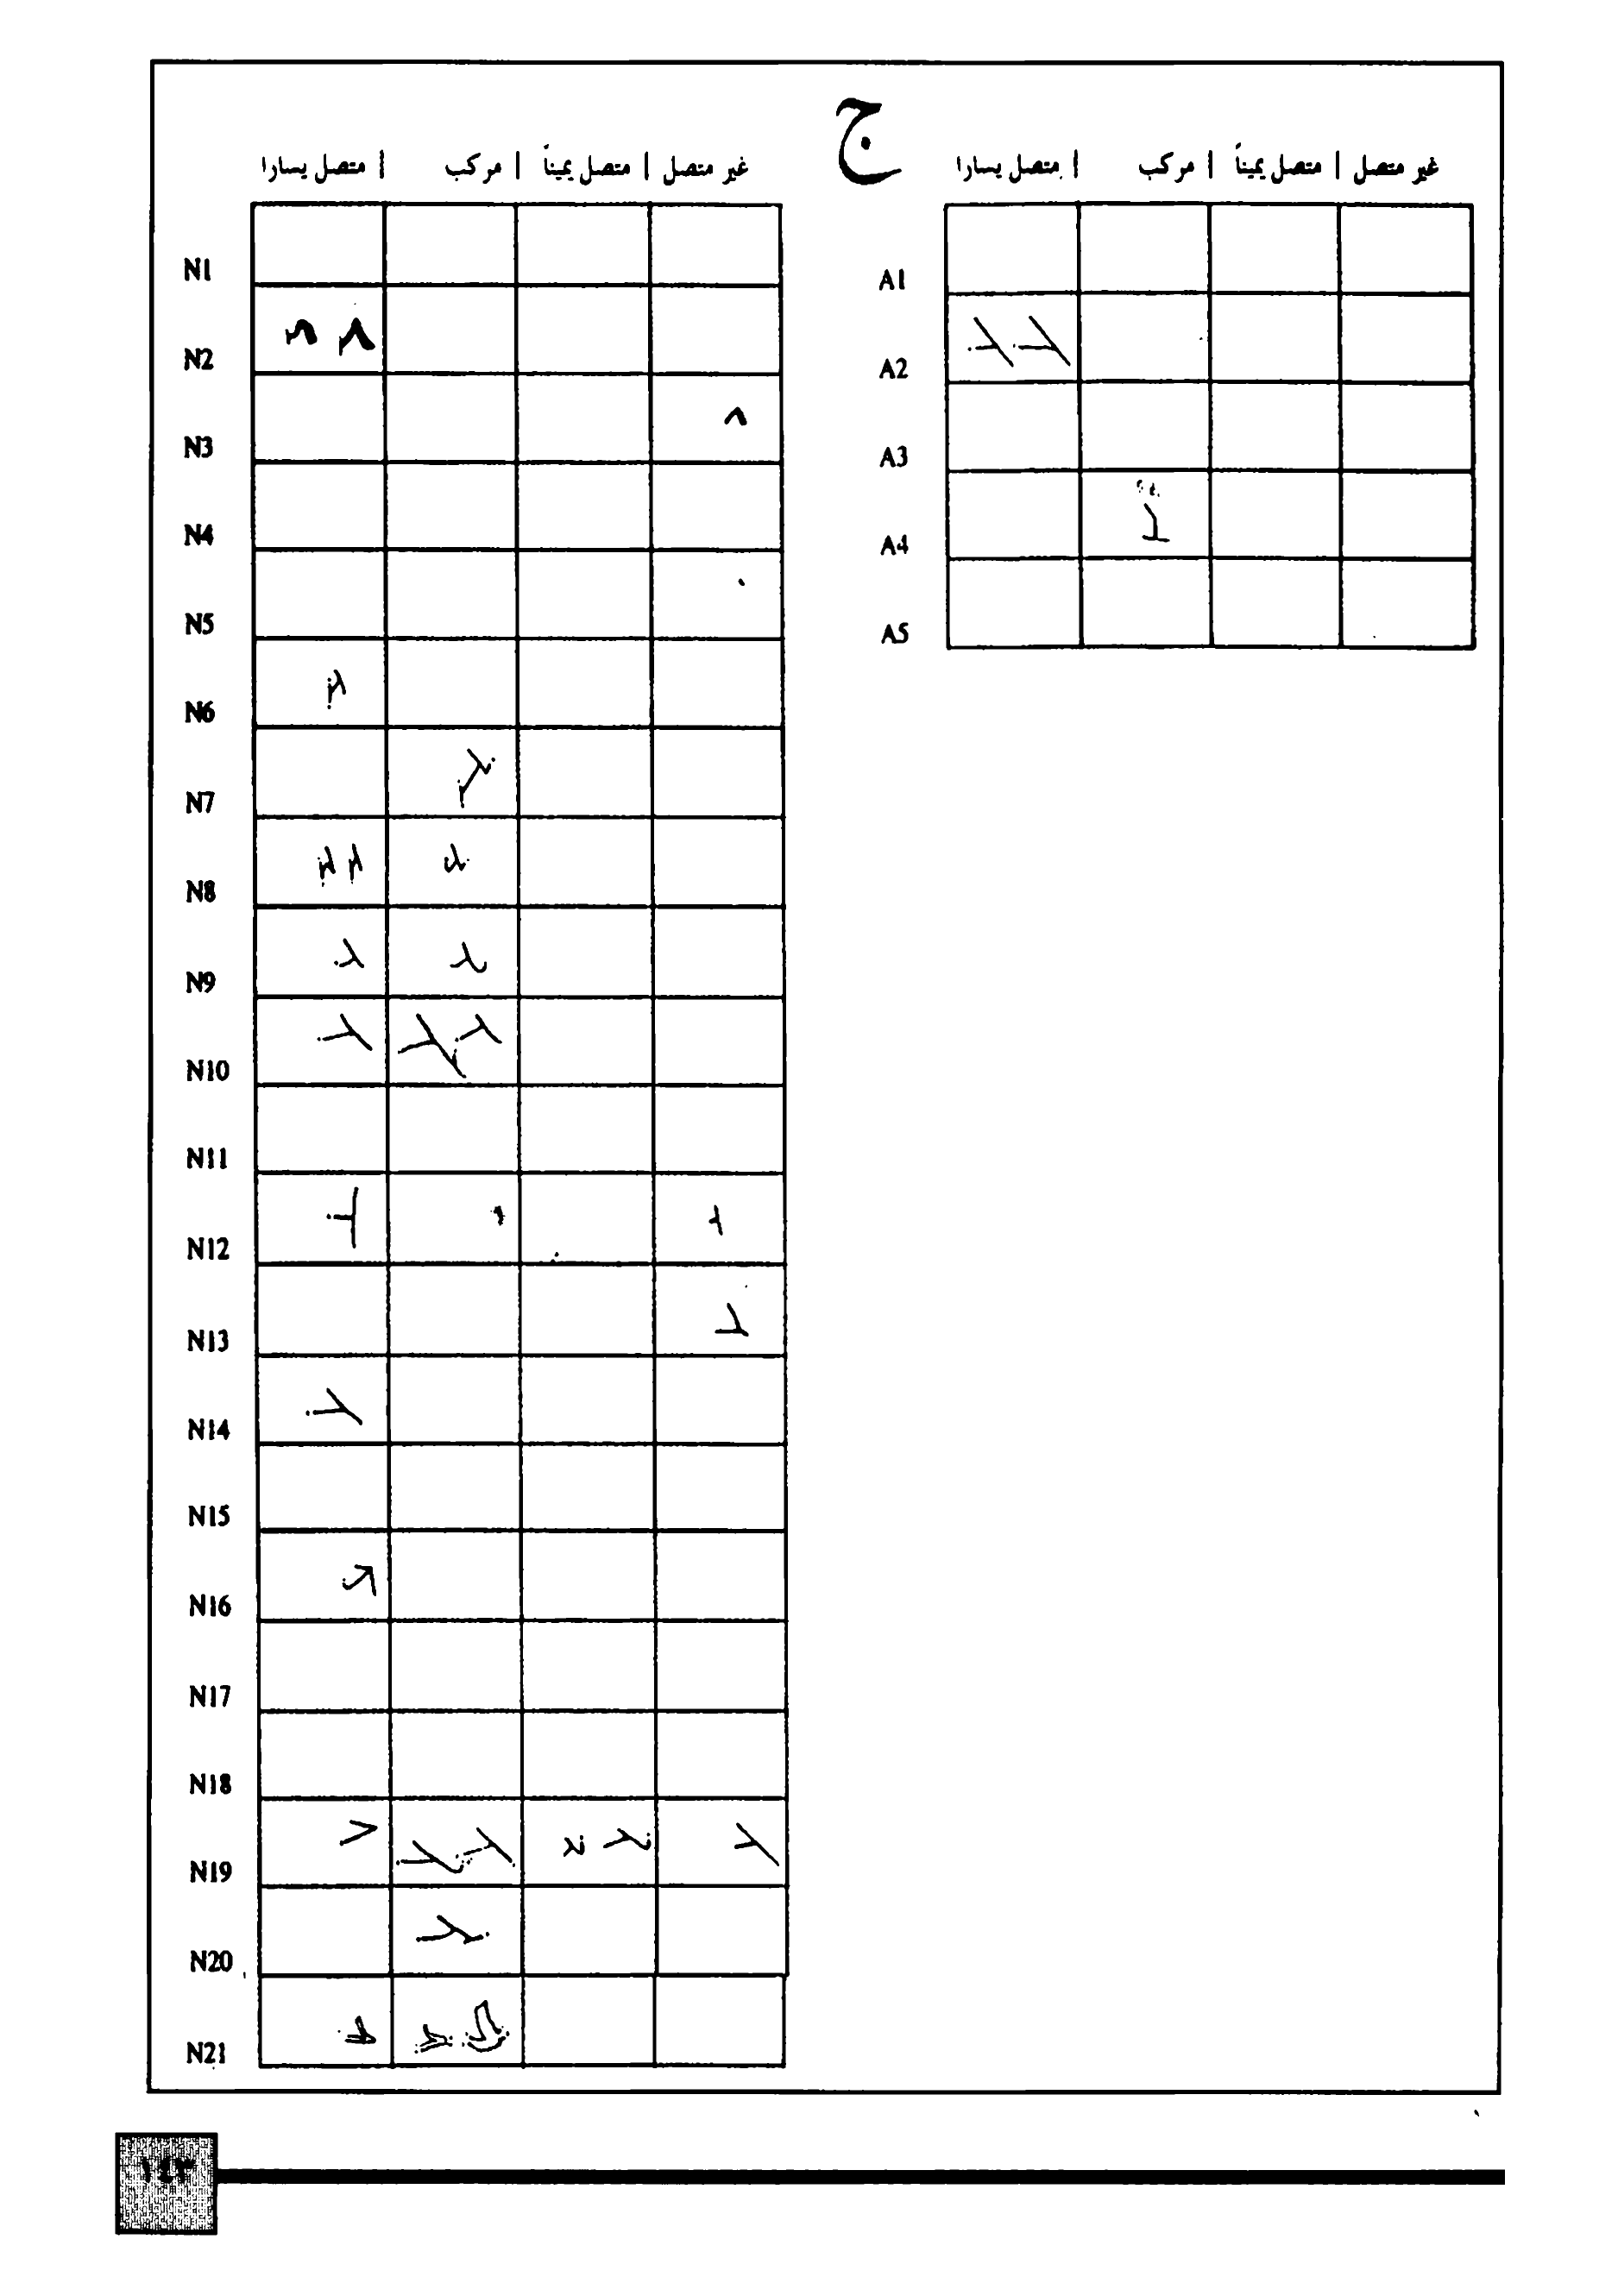 ج
غير متصل | متصل يميناً | مركب | متصل يسارا
A1
A2
A3
A4
A5
غير متصل | متصل يميناً | مركب | متصل يسارا
N1
N2
N3
N4
N5
N6
N7
N8
N9
N10
N11
N12
N13
N14
N15
N16
N17
N18
N19
N20
N21
١٤٣